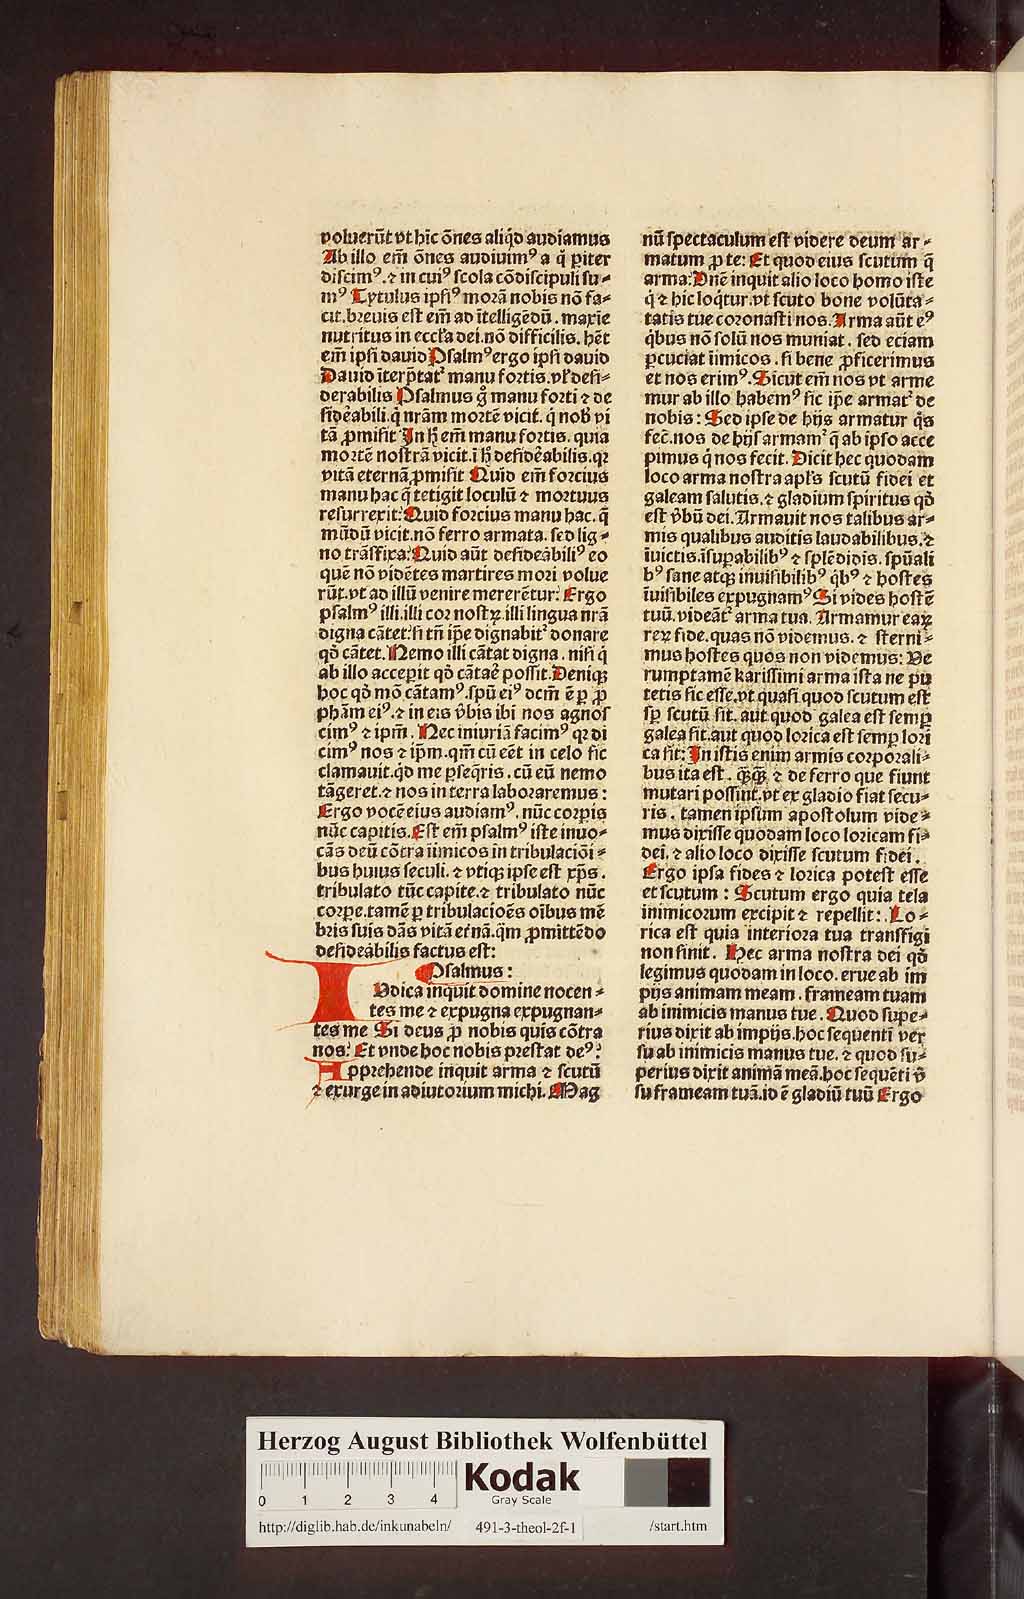 voluerūt vt hīc ōnes aliqͥd audiamus
Ab illo em̄ ōnes audiuimꝰ a q̊ pͥter
discimꝰ. ⁊ in cuiꝰ scola cōdiscipuli su-
mꝰ Tytulus ipsiꝰ morā nobis nō fa-
cit. breuis est em̄ ad ītelligēdū. maxīe
nutritus in eccl̄ia dei. nō difficilis. hēt
em̄ ipsi dauid Psalmꝰ ergo ipsi dauid
Dauid īterp̄tatᷣ manu fortis. vl̓ desi-
derabilis Psalmus gͦ manu forti ⁊ de
sid̓abili. q̇ nrām mortē vicit. q̇ nob̓ vi
tā ꝓmisit In h̓ em̄ manu fortis. quia
mortē nostrā vicit. ī h̓ desid̓abilis. qꝛ
vitā eternā ꝓmisit Quid em̄ forcius
manu hac q̄ tetigit loculū ⁊ mortuus
resurrexit: Quid forcius manu hac. q̄
mūdū vicit. nō ferro armata. sed lig-
no trāsfixa: Quid aūt desid̓abiliꝰ eo
quē nō vidētes martires mori volue
rūt. vt ad illū venire mererētur: Ergo
psalmꝰ illi. illi cor nostꝝ. illi lingua nrā
digna cātet: si tn̄ ip̄e dignabitᷣ donare
qd̓ cātet. Nemo illi cātat digna. nisi q̇
ab illo acceperit qd̓ cātare possit. Deniqꝫ
hoc qd̓ mō cātamꝰ. spū eiꝰ dcm̄ ē ꝑ ꝓ
phām eiꝰ. ⁊ in eis v̓bis ibi nos agnos
cimꝰ ⁊ ip̄m. Nec iniuriā facimꝰ qꝛ di
cimꝰ nos ⁊ ip̄m. qm̄ cū eēt in celo sic
clamauit. qͥd me ꝑseqͥris. cū eū nemo
tāgeret. ⁊ nos in terra laboraremus:
Ergo vocē eius audiamꝰ. nūc corpis
nūc capitis. Est em̄ psalmꝰ iste inuo-
cās deū cōtra iīmicos in tribulaciōi-
bus huius seculi. ⁊ vtiqꝫ ipse est xp̄s.
tribulato tūc capite. ⁊ tribulato nūc
corpe. tamē ꝑ tribulacioēs oībus mē
bris suis dās vitā et̓nā. qm̄ ꝓmittēdo
desid̓abilis factus est:
Psalmus:
IVdica inquit domine nocen-
tes me ⁊ expugna expugnan-
tes me Si deus ꝓ nobis quis cōtra
nos: Et vnde hoc nobis prestat deꝰ:
Apprehende inquit arma ⁊ scutū
⁊ exurge in adiutorium michi. Mag
nū spectaculum est videre deum ar-
matum ꝓ te: Et quod eius scutum q̄
arma: Dn̄e inquit alio loco homo iste
q̇ ⁊ hic loqͥtur. vt scuto bone volūta-
tatis tue coronasti nos. Arma aūt eꝰ
qͥbus nō solū nos muniat. sed eciam
ꝑcuciat iīmicos. si bene ꝓficerimus
et nos erimꝰ. Sicut em̄ nos vt arme
mur ab illo habemꝰ sic ip̄e armatᷣ de
nobis: Sed ipse de hijs armatur qͦs
fec̄. nos de hijs armamᷣ q̄ ab ipso acce
pimus q̇ nos fecit. Dicit hec quodam
loco arma nostra apl̄s scutū fidei et
galeam salutis. ⁊ gladium spiritus qd̓
est v̓bū dei. Armauit nos talibus ar-
mis qualibus auditis laudabilibus. ⁊
īuictis. īsuꝑabilibꝰ ⁊ splēdidis. spūali
bꝰ sane atqꝫ inuisibilibꝰ qͥbꝰ ⁊ hostes
īuisibiles expugnamꝰ Si vides hostē
tuū. videāt᷑ arma tua. Armamur eaꝝ
reꝝ fide. quas nō videmus. ⁊ sterni-
mus hostes quos non videmus: Ve
rumptamē karissimi arma ista ne pu
tetis sic esse. vt quasi quod scutum est
sp̄ scutū sit. aut quod galea est semꝑ
galea sit. aut quod lorica est semꝑ lori
ca sit: In istis enim armis corporali-
bus ita est. qͣꝫqͣꝫ ⁊ de ferro que fiunt
mutari possint. vt ex gladio fiat secu-
ris. tamen ipsum apostolum vide-
mus dixisse quodam loco loricam fi-
dei. ⁊ alio loco dixisse scutum fidei.
Ergo ipsa fides ⁊ lorica potest esse
et scutum: Scutum ergo quia tela
inimicorum excipit ⁊ repellit: Lo-
rica est quia interiora tua transfigi
non sinit. Hec arma nostra dei qd̓
legimus quodam in loco. erue ab im
pijs animam meam. frameam tuam
ab inimicis manus tue. Quod supe-
rius dixit ab impijs. hoc sequenti ver
su ab inimicis manus tue. ⁊ quod su-
perius dixit animā meā. hoc sequēti v̓
su frameam tuā. id ē gladiū tuū Ergo
Herzog August Bibliothek Wolfenbüttel
0 1 2 3 4
Kodak
Gray Scale
http://diglib.hab.de/inkunabeln/ 491-3-theol-2f-1 /start.htm